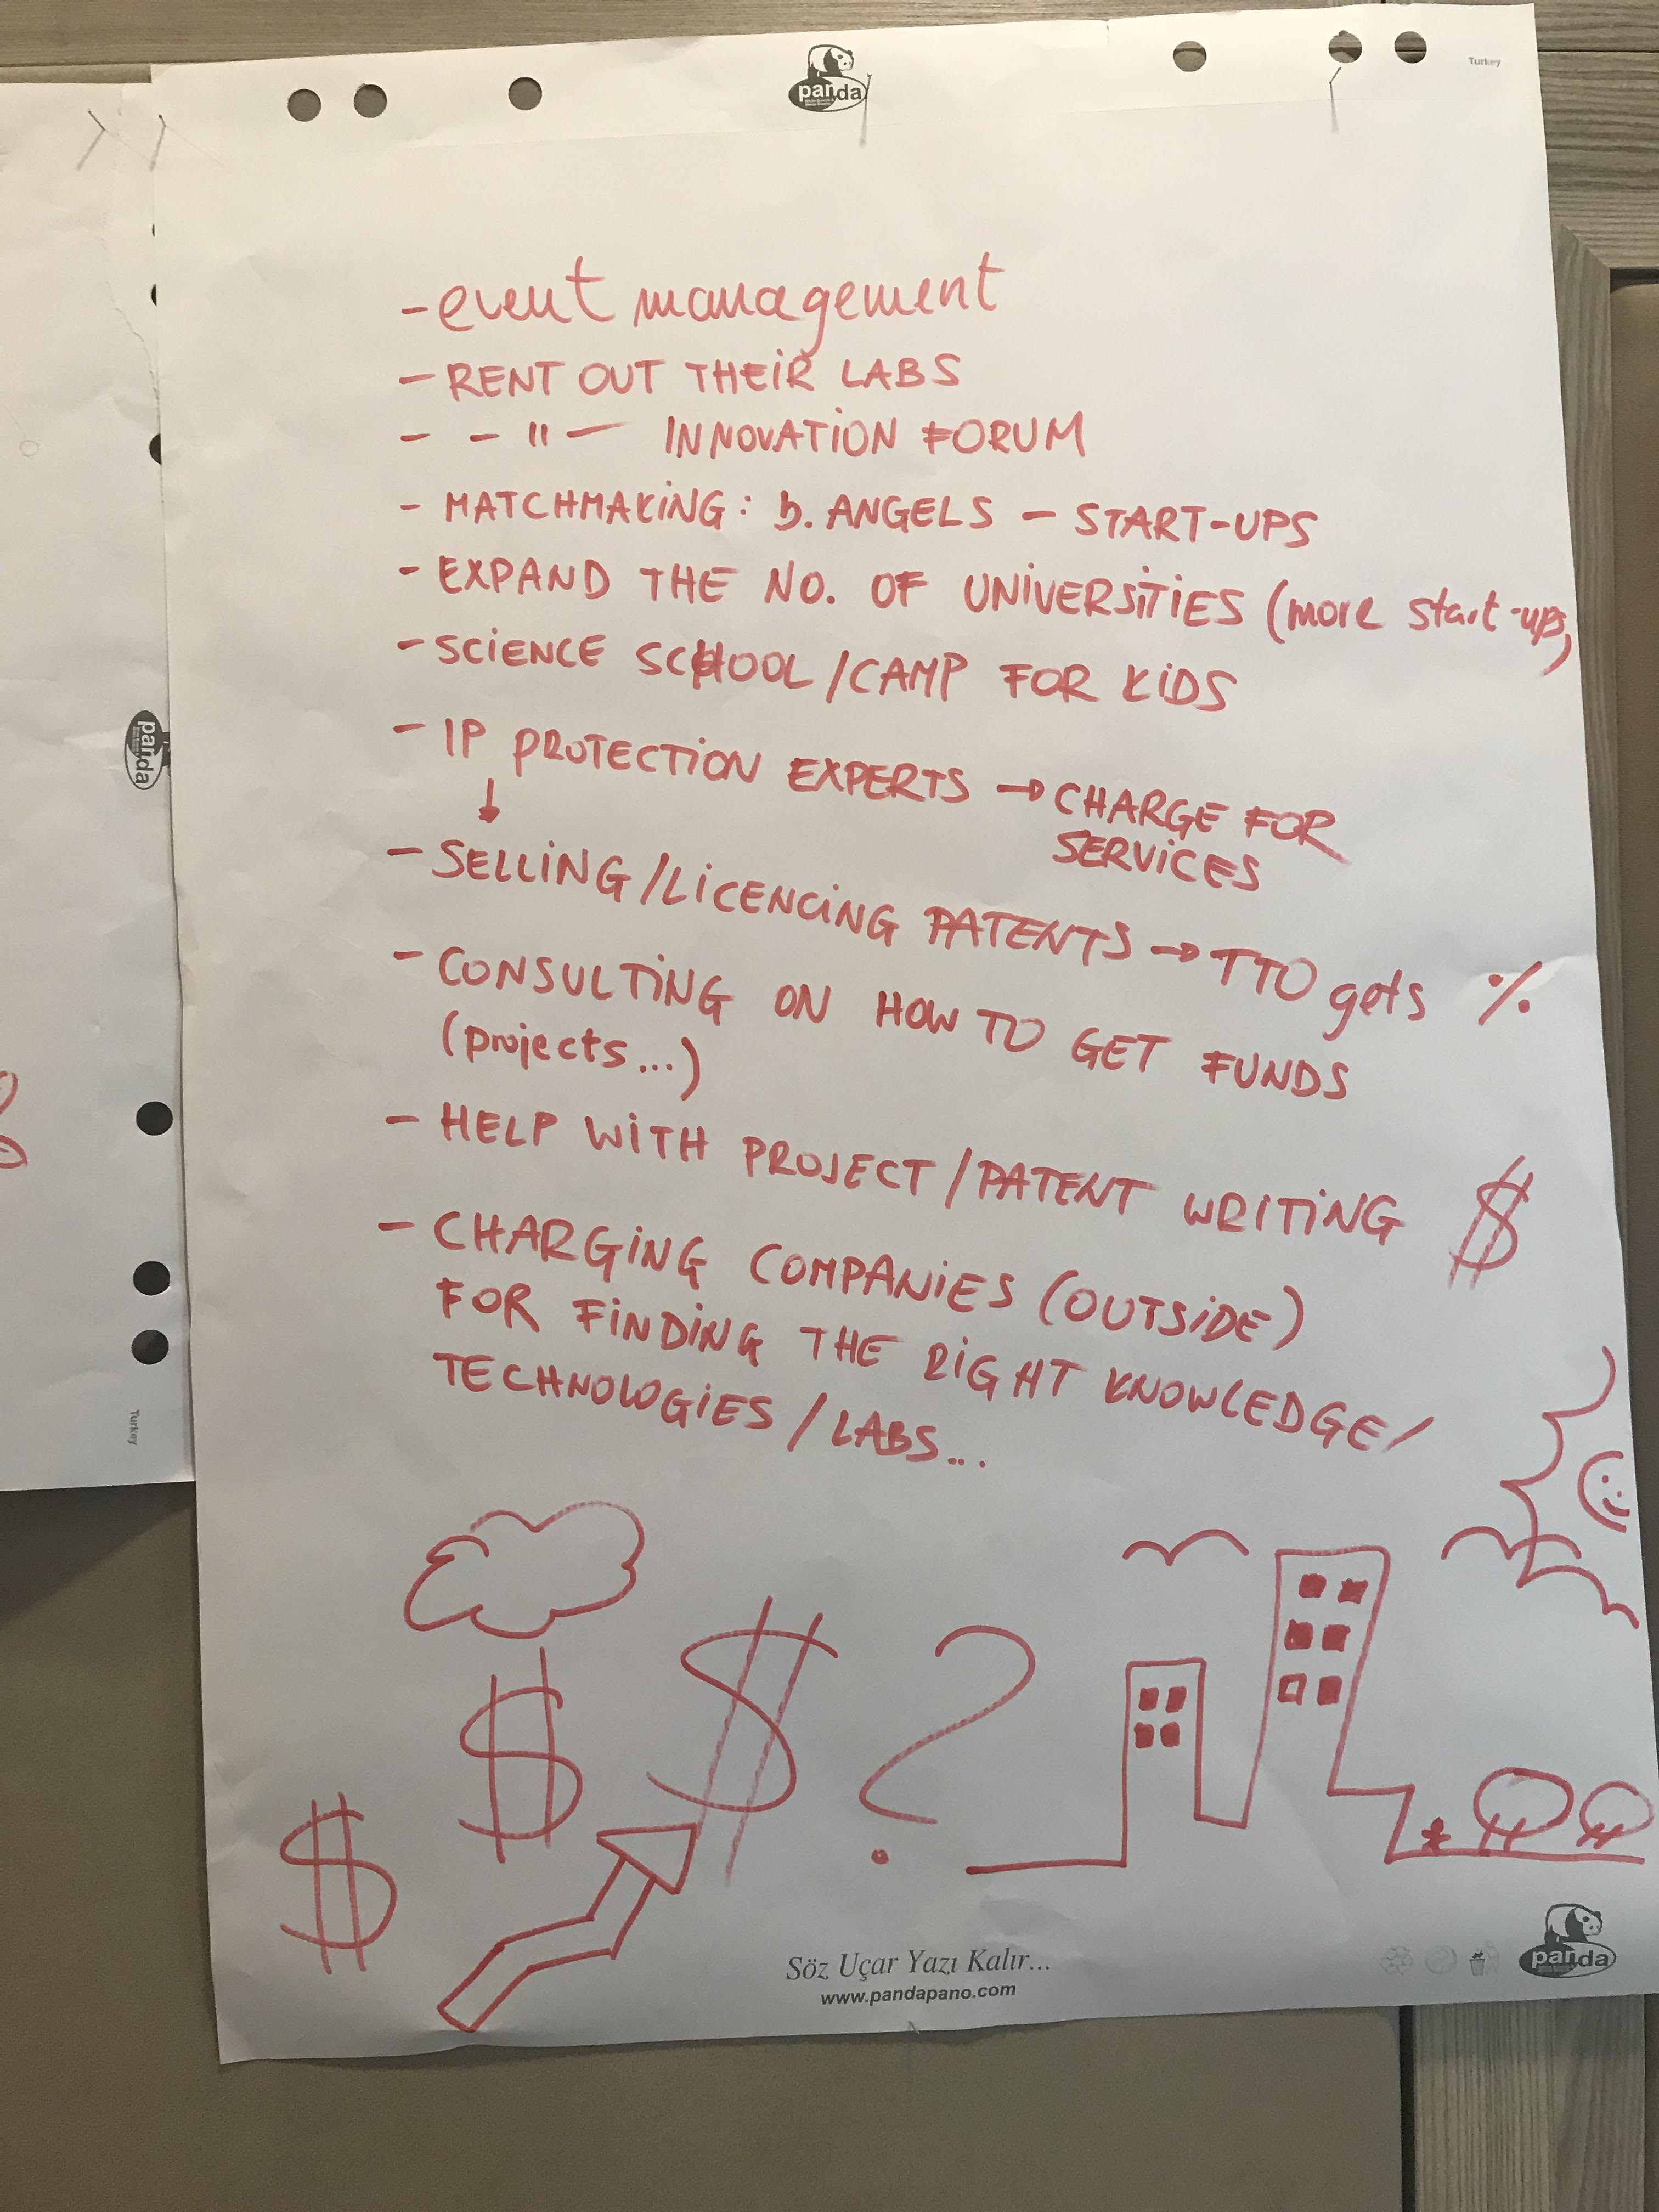 panda
Turkey
- event management
- RENT OUT THEiR LABS
- - " - INNOVATiON FORUM
- MATCHMAKiNG: b. ANGELS - START-UPS
- EXPAND THE NO. OF UNiVERSiTiES (more start-ups)
- SCiENCE SCHOOL/CAMP FOR KiDS
- IP PROTECTiON EXPERTS → CHARGE FOR
SERViCES
↓
- SELLiNG/LiCENCiNG PATENTS → TTO gets %
- CONSULTiNG ON HOW TO GET FUNDS
(projects...)
- HELP WiTH PROJECT/PATENT WRiTiNG $
- CHARGiNG COMPANiES (OUTSiDE)
FOR FiNDiNG THE RiGHT KNOWLEDGE/
TECHNOLOGiES/LABS...
$ $ $ ?
Söz Uçar Yazı Kalır...
www.pandapano.com
panda
panda
Turkey